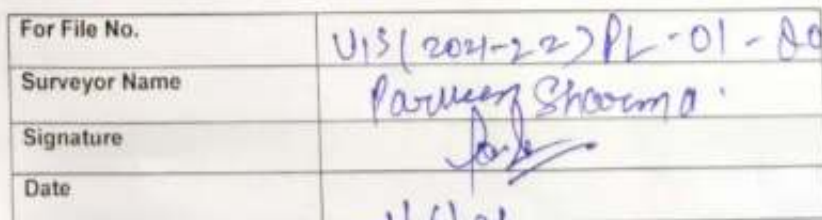 For File No. VIS(2021-22)PL-01-00
Surveyor Name Parveen Sharma.
Signature
Date